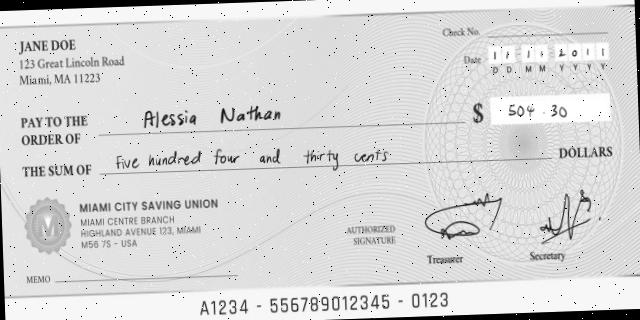 JANE DOE
123 Great Lincoln Road
Miami, MA 11223
Check No.
Date 11 11 2011
D D M M Y Y Y Y
PAY TO THE
ORDER OF Alessia Nathan
$ 504.30
THE SUM OF Five hundred four and thirty cents DOLLARS
M
MIAMI CITY SAVING UNION
MIAMI CENTRE BRANCH
HIGHLAND AVENUE 123, MIAMI
M56 7S - USA
AUTHORIZED
SIGNATURE
Treasurer
Secretary
MEMO
A1234 - 556789012345 - 0123